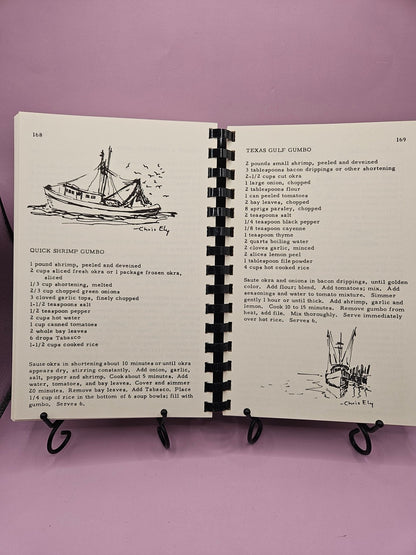 168
—Chris Ely
QUICK SHRIMP GUMBO
1 pound shrimp, peeled and deveined
2 cups sliced fresh okra or 1 package frozen okra,
sliced
1/3 cup shortening, melted
2/3 cup chopped green onions
3 cloved garlic tops, finely chopped
1-1/2 teaspoons salt
1/2 teaspoon pepper
2 cups hot water
1 cup canned tomatoes
2 whole bay leaves
6 drops Tabasco
1-1/2 cooked rice
Saute okra in shortening about 10 minutes or until okra
appears dry, stirring constantly. Add onion, garlic,
salt, pepper and shrimp. Cook about 5 minutes. Add
water, tomatoes, and bay leaves. Cover and simmer
20 minutes. Remove bay leaves. Add Tabasco. Place
1/4 cup of rice in the bottom of 6 soup bowls; fill with
gumbo. Serves 6.
169
TEXAS GULF GUMBO
2 pounds small shrimp, peeled and deveined
3 tablespoons bacon drippings or other shortening
2-1/2 cups cut okra
1 large onion, chopped
2 tablespoons flour
1 can peeled tomatoes
2 bay leaves, chopped
8 sprigs parsley, chopped
2 teaspoons salt
1/4 teaspoon black pepper
1/8 teaspoon cayenne
1 teaspoon thyme
2 quarts boiling water
2 cloves garlic, minced
2 slices lemon peel
1 tablespoon file powder
4 cups hot cooked rice
Saute okra and onions in bacon drippings, until golden
color. Add flour; blend. Add tomatoes; mix. Add
seasonings and water to tomato mixture. Simmer
gently 1 hour or until thick. Add shrimp, garlic and
lemon. Cook 10 to 15 minutes. Remove gumbo from
heat, add file. Mix thoroughly. Serve immediately
over hot rice. Serves 6.
—Chris Ely